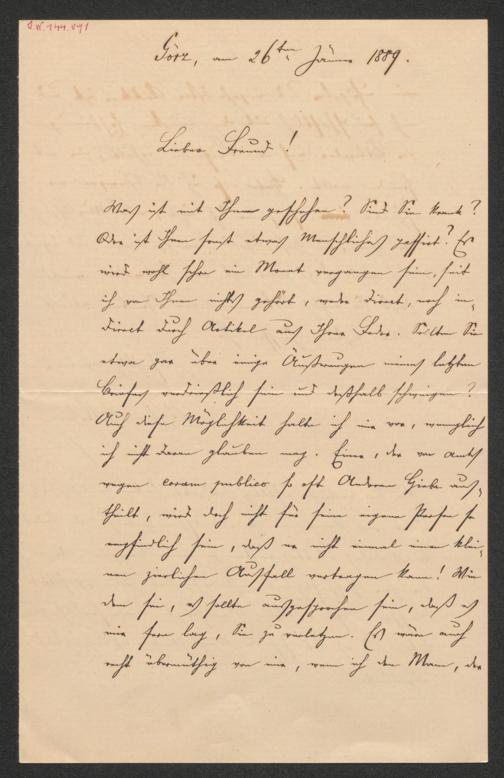 I.N. 144.491
Görz, am 26ten Jänner 1889.
Lieber Freund!
Was ist mit Ihnen geschehen? Sind Sie krank?
Oder ist Ihnen sonst etwas Menschliches passiert? Es
wird wohl schon ein Monat vergangen sein, seit
ich von Ihnen nichts gehört, weder direct, noch in-
direct durch Artikel aus Ihrer Feder. Sollten Sie
etwa gar über einige Äußerungen meines letzten
Briefes verdrießlich sein und deßhalb schweigen?
Auch diese Möglichkeit halte ich mir vor, wenngleich
ich nicht daran glauben mag. Einer, der von amts
wegen coram publico so oft Anderen Hiebe aus-
theilt, wird doch nicht für seine eigene Person so
empfindlich sein, daß er nicht einmal einen klei-
nen zierlichen Ausfall vertragen kann! Wie
dem sei, es sollte ausgesprochen sein, daß es
mir fern lag, Sie zu verletzen. Es wäre auch
recht übermüthig von mir, wenn ich den Mann, der